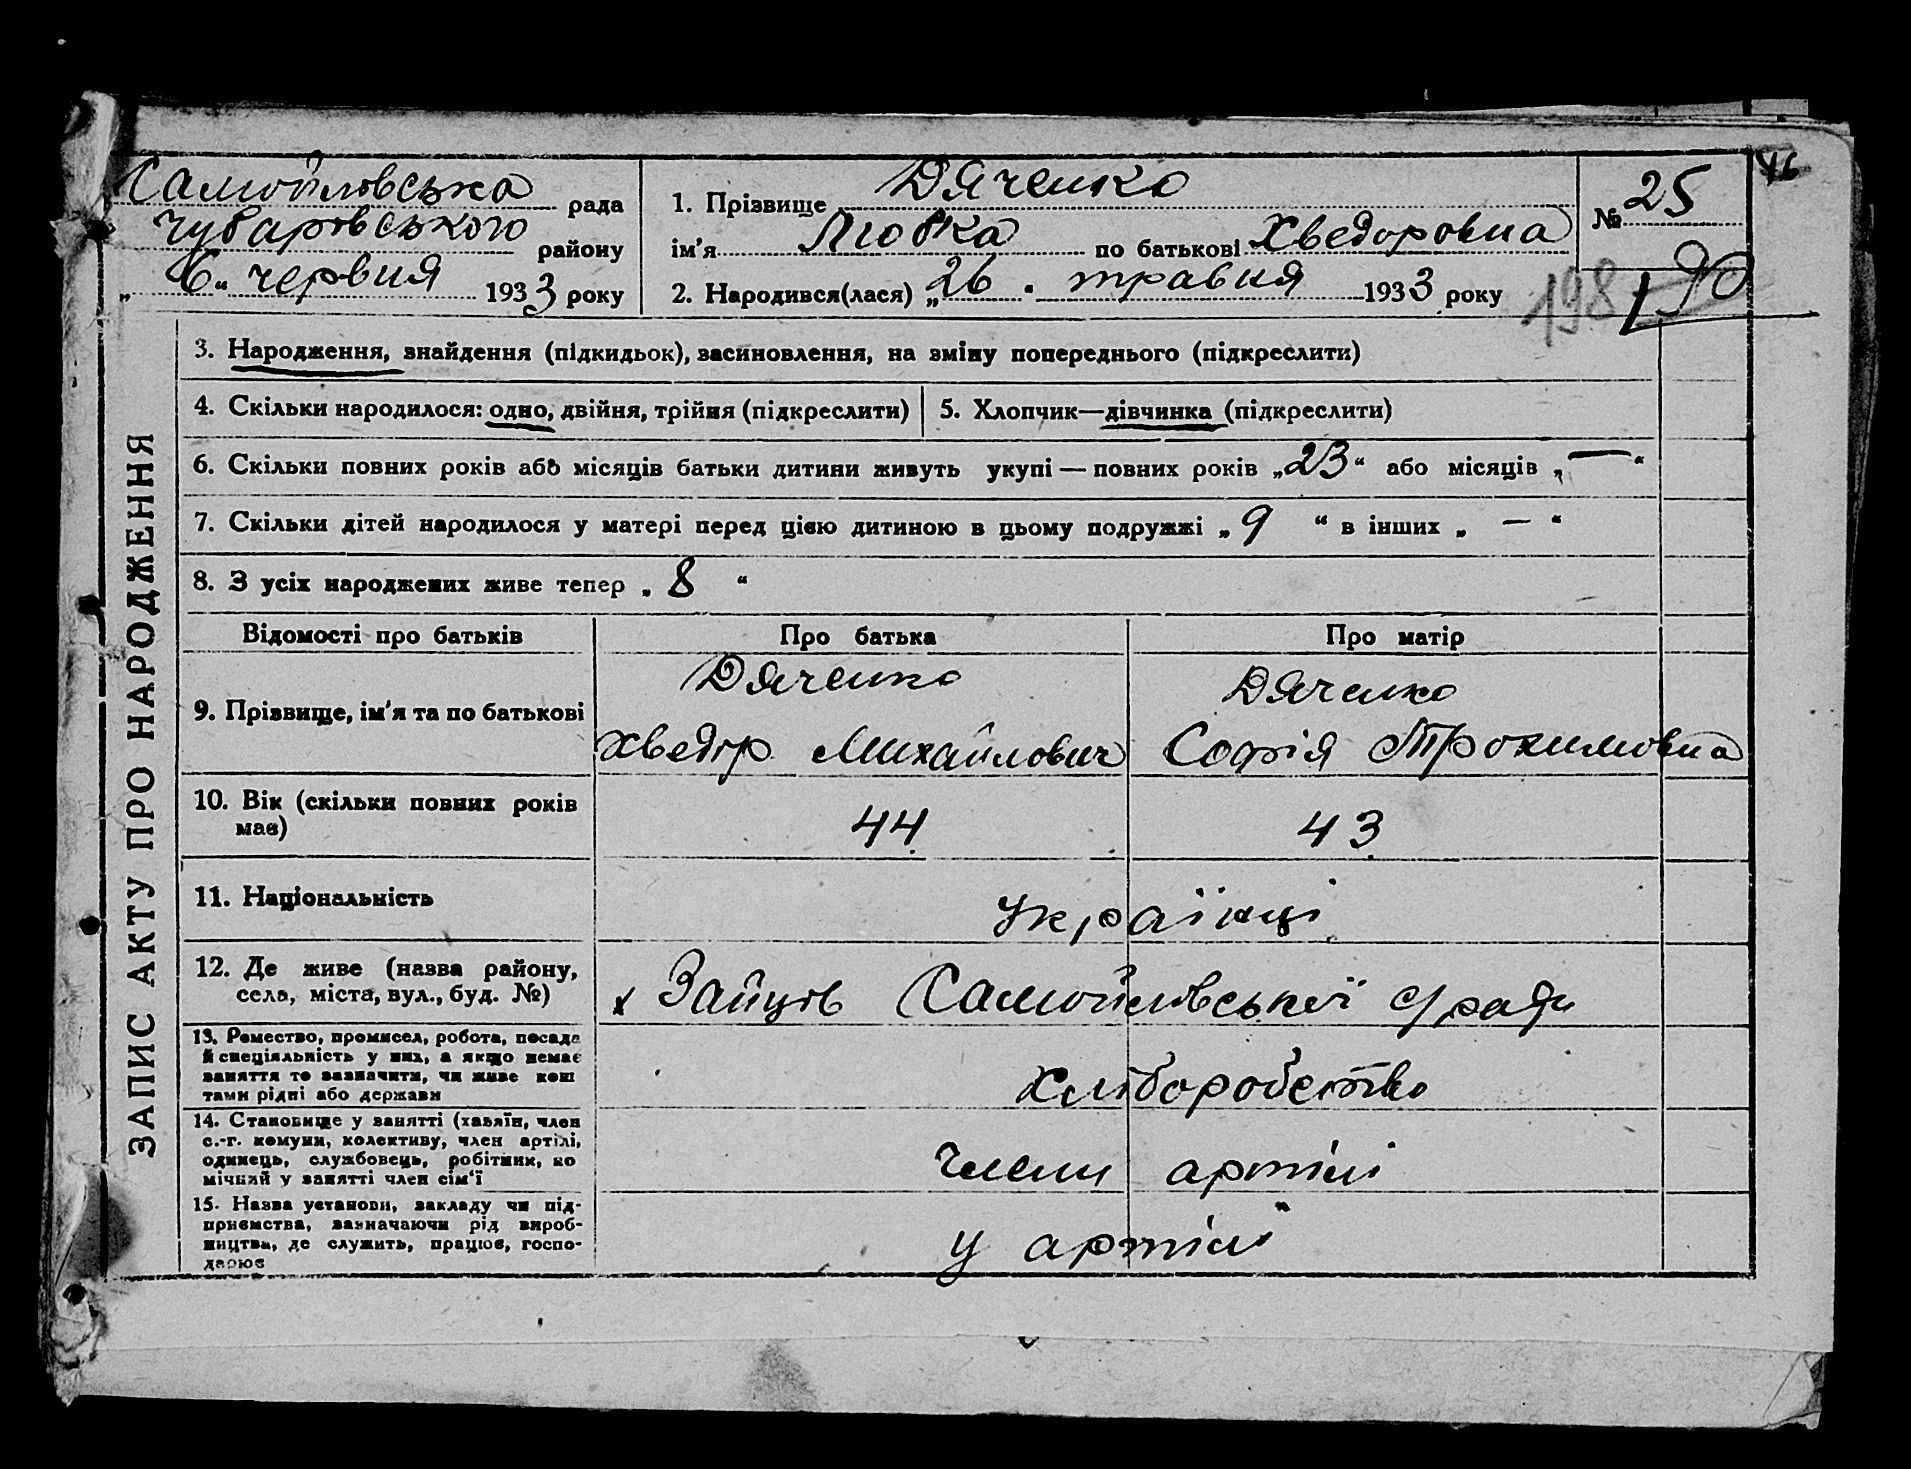 46
Самойловська рада
Чубаровського району
„6“ червня 1933 року
1. Прізвище Дяченко
ім'я Любка по батькові Хведоровна
2. Народився(лася) „26. травня 1933 року
№ 25
198
190
ЗАПИС АКТУ ПРО НАРОДЖЕННЯ
3. Народження, знайдення (підкидьок), засиновлення, на зміну попереднього (підкреслити)
4. Скільки народилося: одно, двійня, трійня (підкреслити)
5. Хлопчик—дівчинка (підкреслити)
6. Скільки повних років або місяців батьки дитини живуть укупі — повних років „23“ або місяців „—“
7. Скільки дітей народилося у матері перед цією дитиною в цьому подружжі „9“ в інших „—“
8. З усіх народжених живе тепер „8“
Відомості про батьків Про батька Про матір
9. Прізвище, ім'я та по батькові
Дяченко
Хведір Михайлович
Дяченко
Софія Трохимовна
10. Вік (скільки повних років
має)
44 43
11. Національність
Українці
12. Де живе (назва району,
села, міста, вул., буд. №)
х Зайців Самойлівської с/ради
13. Ремество, промисел, робота, посада
й спеціяльність у них, а якщо немає
заняття то зазначити, чи живе кош
тами рідні або держави
Хліборобство
14. Становище у занятті (хазяїн, член
с.-г. комуни, колективу, член артілі,
одинець, службовець, робітник, по
мічний у занятті член сім'ї
Члени артілі
15. Назва установи, закладу чи під-
приємства, зазначаючи рід вироб-
ництва, де служить, працює, госпо-
дарює
у артілі